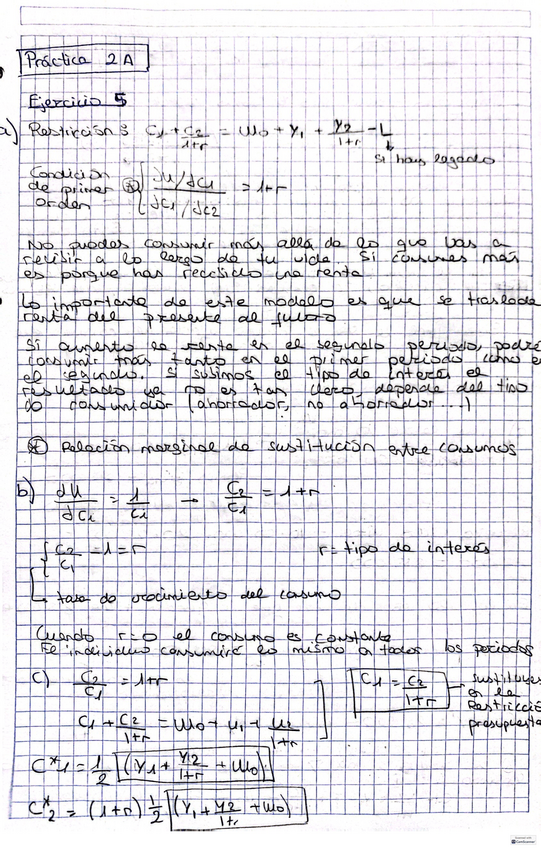 Práctica 2A
Ejercicio 5
a) Restricción: C1 + C2/(1+r) = W0 + Y1 + Y2/(1+r) - L
↓
si hay legado
Condición
de primer
orden
⊛ { (dU/dC1)/(dC1/dC2) = 1+r
No puedes consumir más allá de lo que vas a
recibir a lo largo de tu vida. Si consumes más
es porque has recibido una renta
Lo importante de este modelo es que se traslada
renta del presente al futuro
Si aumento la renta en el segundo periodo, podré
consumir más tanto en el primer periodo como en
el segundo. Si subimos el tipo de interés el
resultado ya no es tan claro, depende del tipo
de consumidor (ahorrador, no ahorrador ...)
⊛ Relación marginal de sustitución entre consumos
b) dU/dC1 = 1/C1 → C2/C1 = 1+r
{ C2/C1 - 1 = r r = tipo de interés
↳ tasa de crecimiento del consumo
Cuando r=0 el consumo es constante
El individuo consumirá lo mismo en todos los periodos
c) C2/C1 = 1+r
C1 + C2/(1+r) = W0 + y1 + y2/(1+r)
C1 = C2/(1+r) → sustituyes
en la
Restricción
presupuesta
C*1 = 1/2 (Y1 + Y2/(1+r) + W0)
C*2 = (1+r) 1/2 (Y1 + Y2/(1+r) + W0)
CamScanner